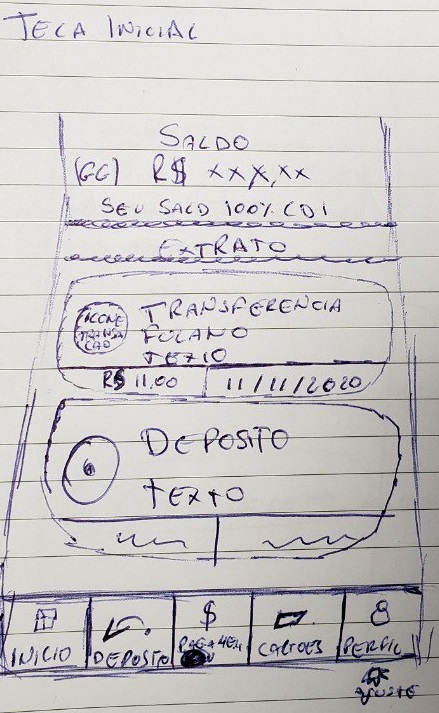 TELA INICIAL
SALDO
(GG) R$ xxx,xx
SEU SALD 100% CDI
EXTRATO
ICONE
TRANSA
CAO
TRANSFERENCIA
FULANO
TEXTO
R$ 11,00
11/11/2020
DEPOSITO
TEXTO
$
INICIO
DEPOSITO
CARTOES
PERFIL
AJUSTE